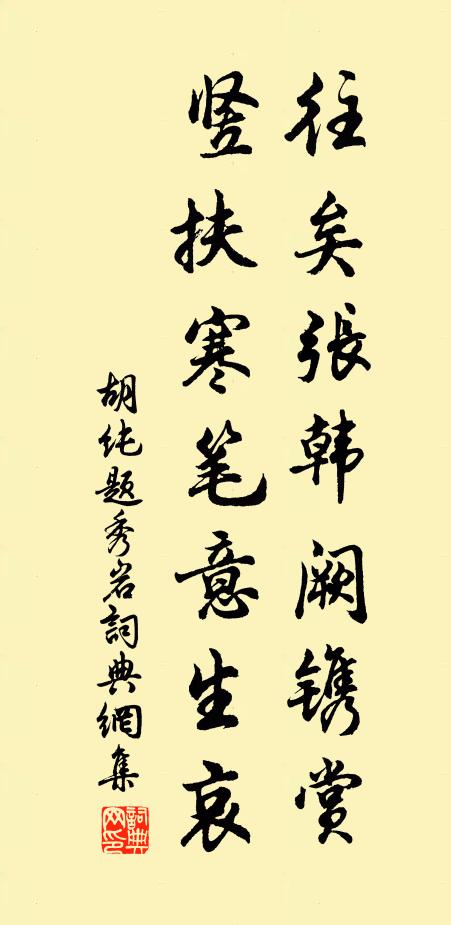 往矣張韩阙镌赏
竖扶寒笔意生哀
胡纯题秀岩詞典網集
詞典網印